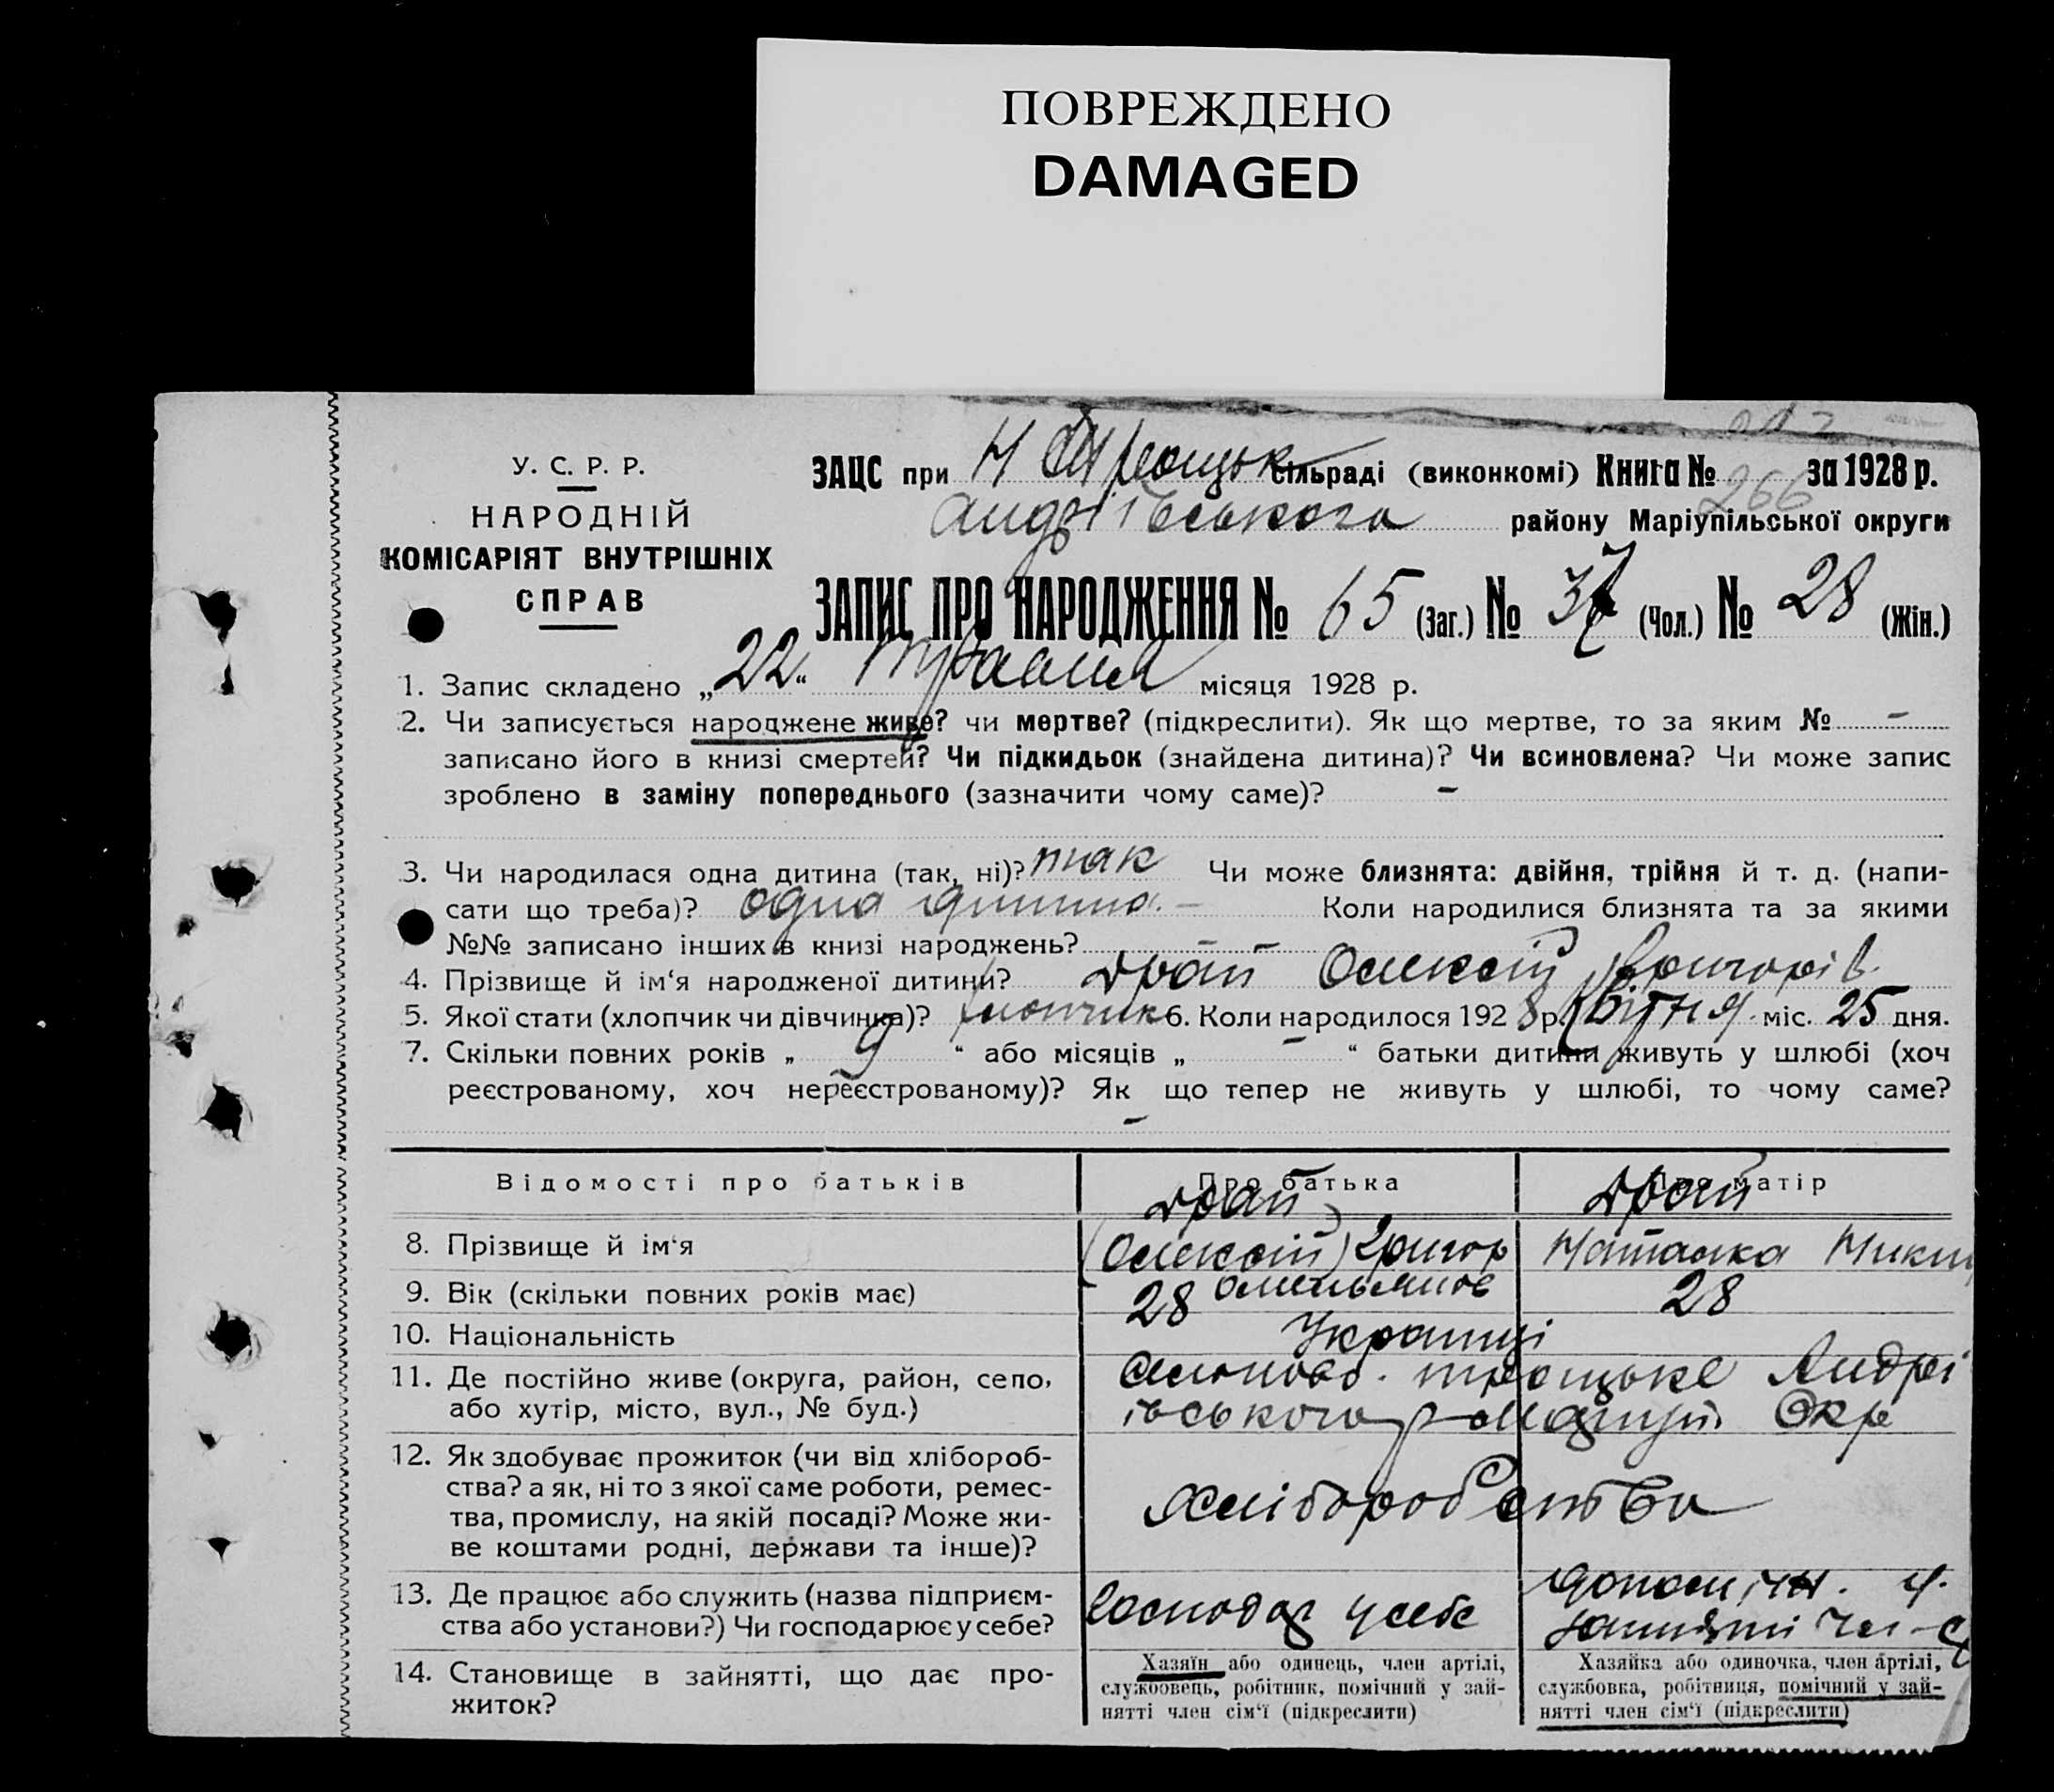 ПОВРЕЖДЕНО
DAMAGED
У. С. Р. Р.
НАРОДНІЙ
КОМІСАРІЯТ ВНУТРІШНІХ
СПРАВ
ЗАЦС при Н сільраді (виконкомі) Книга № 266 за 1928 р.
Андріївського району Маріупільської округи
ЗАПИС ПРО НАРОДЖЕННЯ № 65 (Заг.) № 37 (Чол.) № 28 (Жін.)
1. Запис складено „22“ травня місяця 1928 р.
2. Чи записується народжене живе? чи мертве? (підкреслити). Як що мертве, то за яким № –
записано його в книзі смертей? Чи підкидьок (знайдена дитина)? Чи всиновлена? Чи може запис
зроблено в заміну попереднього (зазначити чому саме)? –
3. Чи народилася одна дитина (так, ні)? так Чи може близнята: двійня, трійня й т. д. (напи-
сати що треба)? одна дитина. – Коли народилися близнята та за якими
№№ записано інших в книзі народжень? – –
4. Прізвище й ім'я народженої дитини? Драй Олексій Григорів.
5. Якої стати (хлопчик чи дівчинка)? хлопчик 6. Коли народилося 1928 р. Квітня міс. 25 дня.
7. Скільки повних років „ 9 “ або місяців „ – “ батьки дитини живуть у шлюбі (хоч
реєстрованому, хоч нереєстрованому)? Як що тепер не живуть у шлюбі, то чому саме?
–
Відомості про батьків Про батька Про матір
Драй Драй
8. Прізвище й ім'я (Олексій) Григор Наталка Микит
Омельянов
9. Вік (скільки повних років має) 28 28
10. Національність Українці
11. Де постійно живе (округа, район, село, троцьке Андрі
або хутір, місто, вул., № буд.) ївського р Окр
12. Як здобуває прожиток (чи від хлібороб-
ства? а як, ні то з якої саме роботи, ремес-
тва, промислу, на якій посаді? Може жи-
ве коштами родні, держави та інше)? Хліборобство
13. Де працює або служить (назва підприєм-
ства або установи?) Чи господарює у себе? Господар у себе
14. Становище в зайнятті, що дає про-
житок?
Хазяїн або одинець, член артілі,
службовець, робітник, помічний у зай-
нятті член сім'ї (підкреслити)
Хазяйка або одиночка, член артілі,
службовка, робітниця, помічний у зай-
нятті член сім'ї (підкреслити)